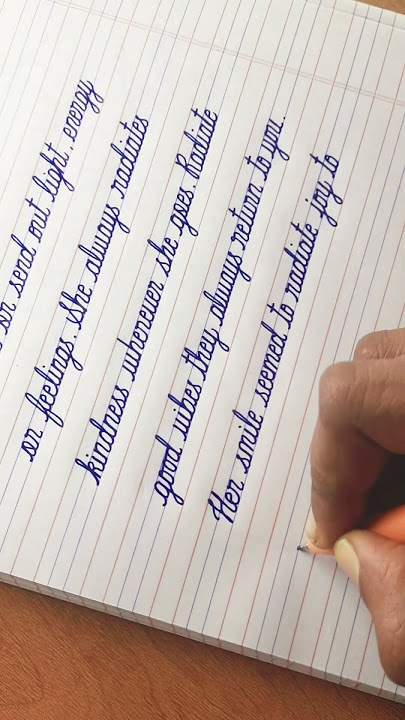 or send out light, energy
or feelings. She always radiates
kindness wherever she goes. Radiate
good vibes they always return to you.
Her smile seemed to radiate joy to